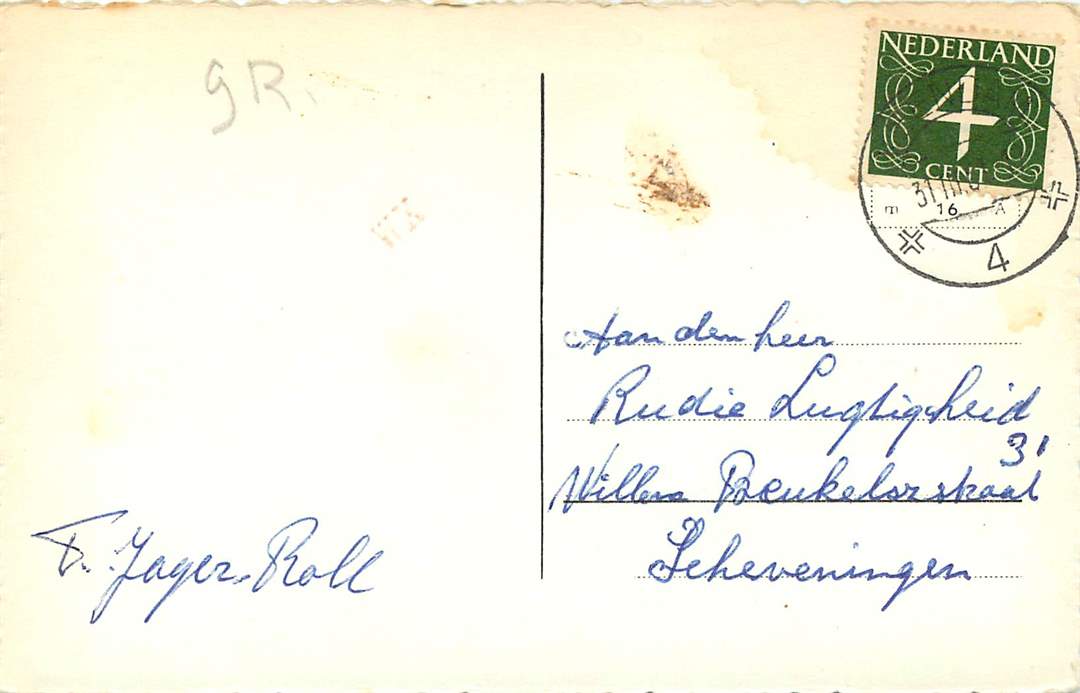 gR.
NEDERLAND
4
CENT
16
4
Aan den heer
Rudie Lugtigheid
31
Willem Beukelszstraat
Scheveningen
F. Jager-Roll